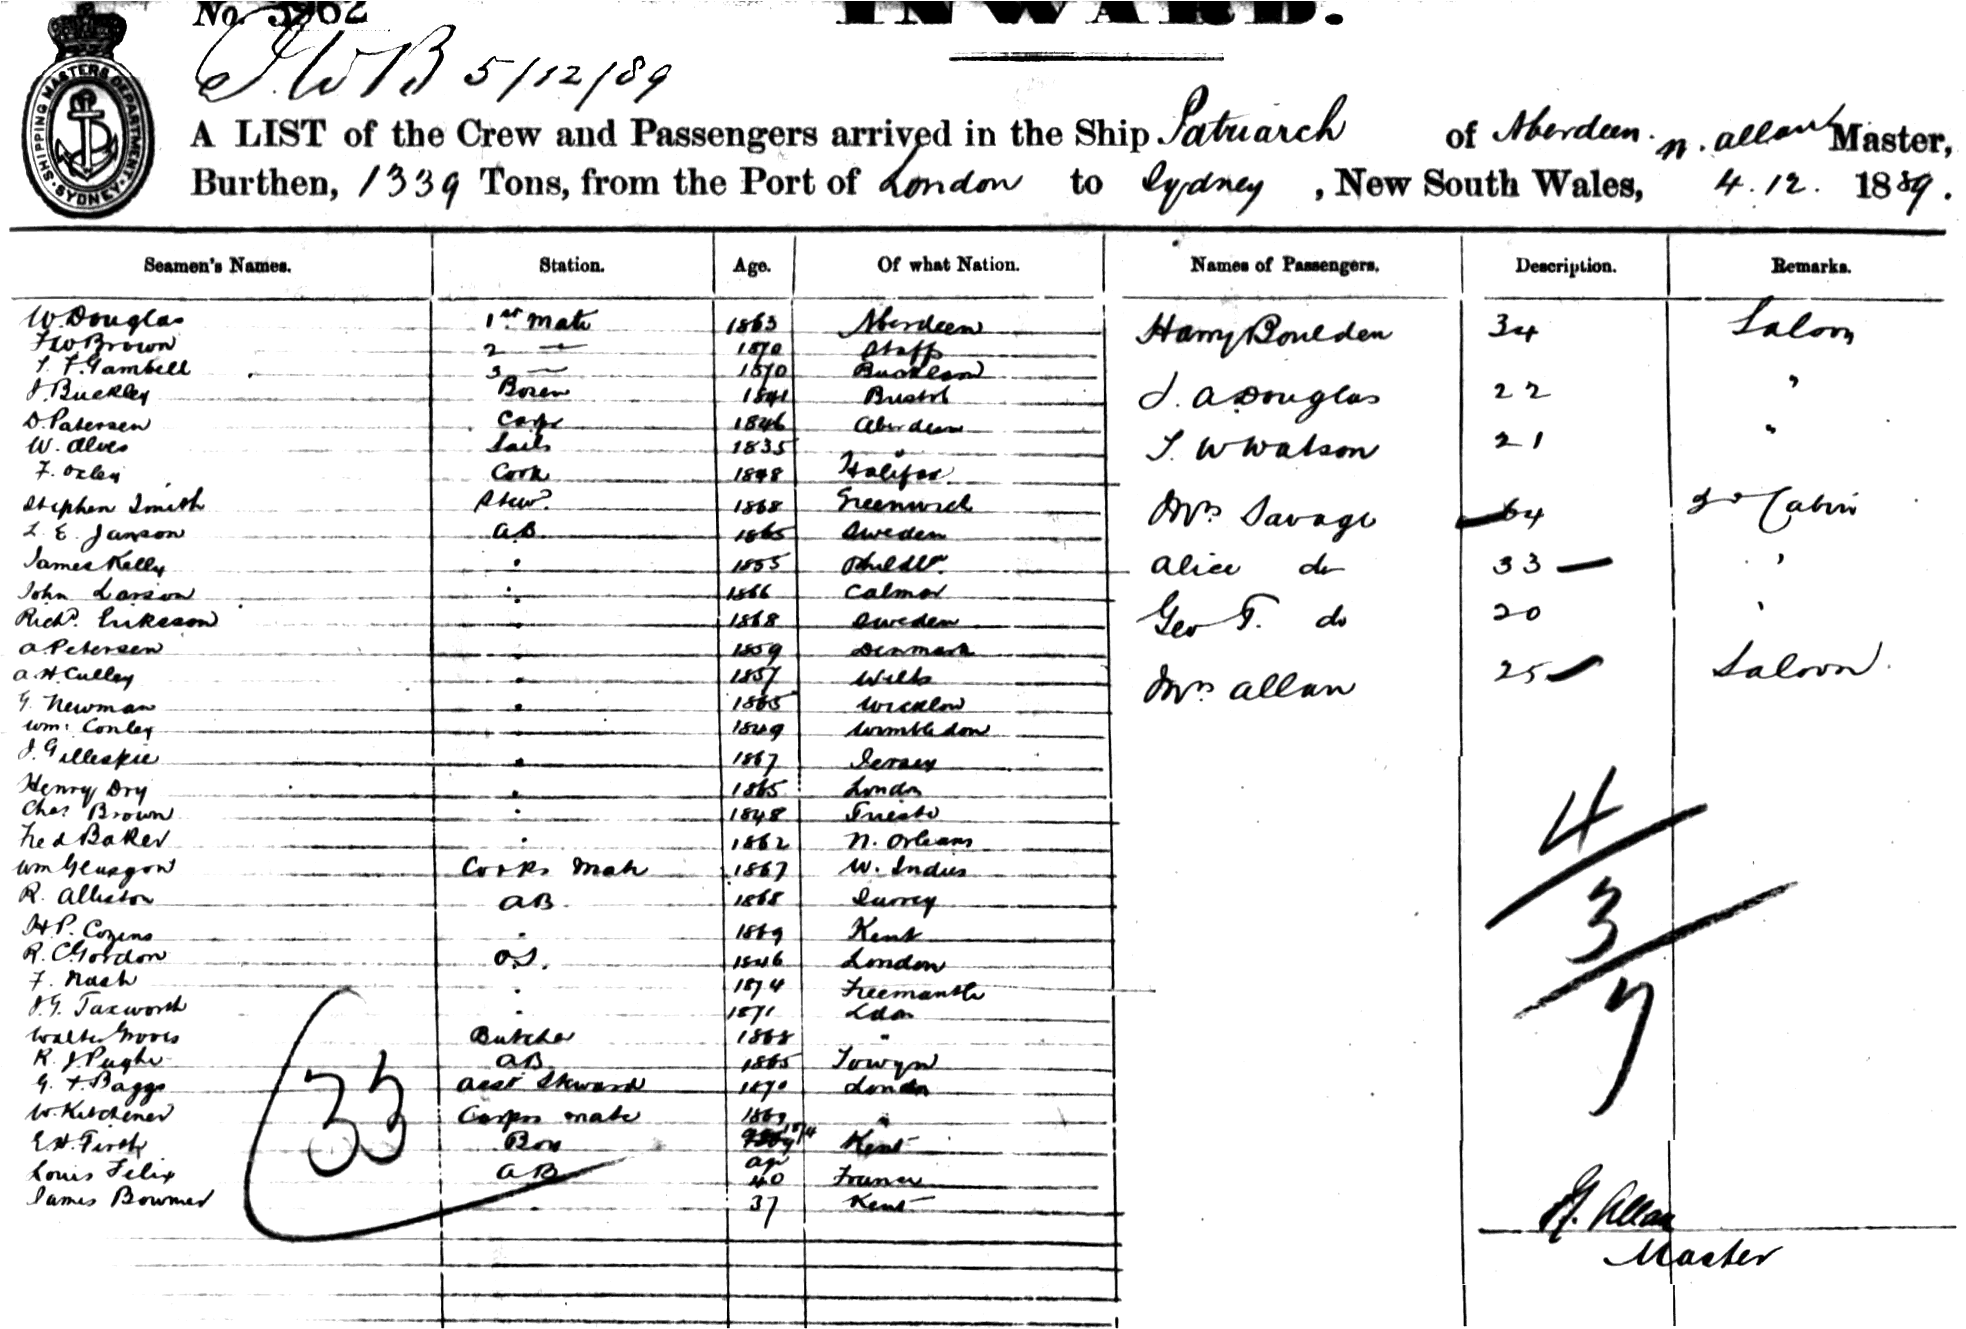 No. 3962
INWARD.
SHIPPING MASTERS DEPARTMENT. SYDNEY
J.W.B 5/12/89
A LIST of the Crew and Passengers arrived in the Ship Patriarch of Aberdeen. Allan Master,
Burthen, 1339 Tons, from the Port of London to Sydney, New South Wales, 4.12.1889.
Seamen's Names. Station. Age. Of what Nation. Names of Passengers. Description. Remarks.
W. Douglas 1st Mate 1863 Aberdeen
Brown 2 — 1870 Staffs
Gambell 3 — 1870
J. Buckley Bosen 1841 Bristol
D. Patersen Carpr 1846 Aberdeen
W. Alves Sails 1835 "
F. Oxley Cook 1848 Halifax
Stephen Smith Stewd 1868 Greenwich
L. E. Janson AB 1865 Sweden
James Kelly " 1855
John Larson " 1866 Calmar
Richd. Eriksson " 1868 Sweden
A. Petersen " 1859 Denmark
A. H. Culley " 1857 Wilts
G. Newman " 1865 Wicklow
Wm: Conley " 1849 Wimbledon
J. Gilleskie " 1867 Jersey
Henry Dry " 1865 London
Chas Brown " 1848 Trieste
Fred Baker " 1862 N. Orleans
Wm Glasgow Cooks Mate 1867 W. Indies
R. Alliston AB 1868 Surrey
H. P. Cozens " 1869 Kent
R. C. Gordon O.S. 1846 London
F. Nash " 1874 Freemantle
J. G. Taxworth " 1871 Ldon
Walter Groves Butcher 1868 "
R. J. Pugh AB 1865 Towyn
G. F. Baggs Asst Steward 1870 London
W. Kitchener Carprs mate 1869 "
E. H. Firth Boy 1874 Kent
Louis Felix AB 40 France
James Bowmer " 37 Kent
33
Harry Boulden 34 Saloon
J. A. Douglas 22 "
T. W Watson 21 "
Mrs Savage 64 2nd Cabin
Alice do 33 — "
Geo T. do 20 "
Mrs Allan 25 — Saloon
4
3
7
Allan
Master